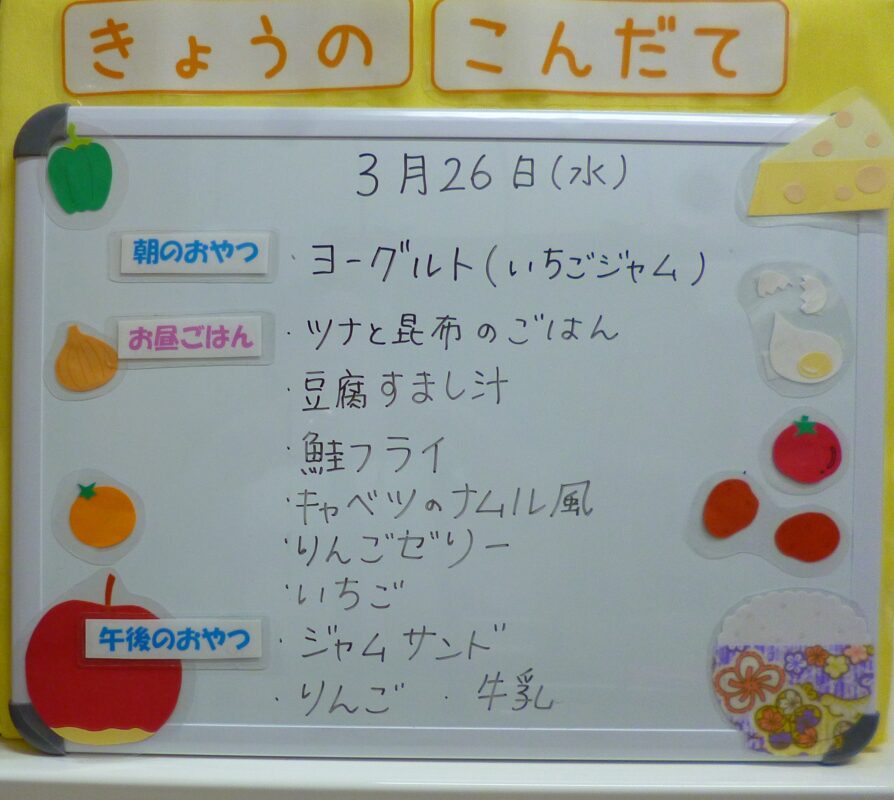 きょうの こんだて
3月26日(水)
朝のおやつ ・ヨーグルト(いちごジャム)
お昼ごはん ・ツナと昆布のごはん
・豆腐すまし汁
・鮭フライ
・キャベツのナムル風
・りんごゼリー
・いちご
午後のおやつ ・ジャムサンド
・りんご ・牛乳